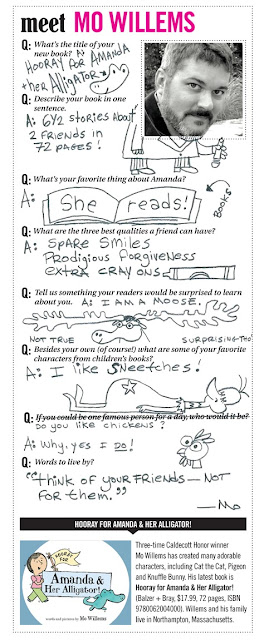 meet MO WILLEMS
Q: What's the title of your
new book? A:
HOORAY FOR AMANDA
+ her Alligator
Q: Describe your book in one
sentence.
A: 6 1/2 STORIES ABOUT
2 FRIENDS IN
72 PAGES!
Q: What's your favorite thing about Amanda?
A: She reads! BOOKS
Q: What are the three best qualities a friend can have?
A: SPARE SMILES
PRODIGIOUS FORGIVENESS
EXTRA CRAYONS
Q: Tell us something your readers would be surprised to learn
about you. A: I AM A MOOSE.
NOT TRUE SURPRISING THO
Q: Besides your own (of course!) what are some of your favorite
characters from children's books?
A: I like Sneetches!
Q: If you could be one famous person for a day, who would it be?
DO YOU LIKE CHICKENS?
A: Why, yes I DO!
Q: Words to live by?
"Think of your FRIENDS — NOT
FOR them."
— Mo
HOORAY FOR AMANDA & HER ALLIGATOR!
HOORAY FOR
Amanda &
Her Alligator!
words and pictures by Mo Willems
Three-time Caldecott Honor winner
Mo Willems has created many adorable
characters, including Cat the Cat, Pigeon
and Knuffle Bunny. His latest book is
Hooray for Amanda & Her Alligator!
(Balzer + Bray, $17.99, 72 pages, ISBN
9780062004000). Willems and his family
live in Northampton, Massachusetts.